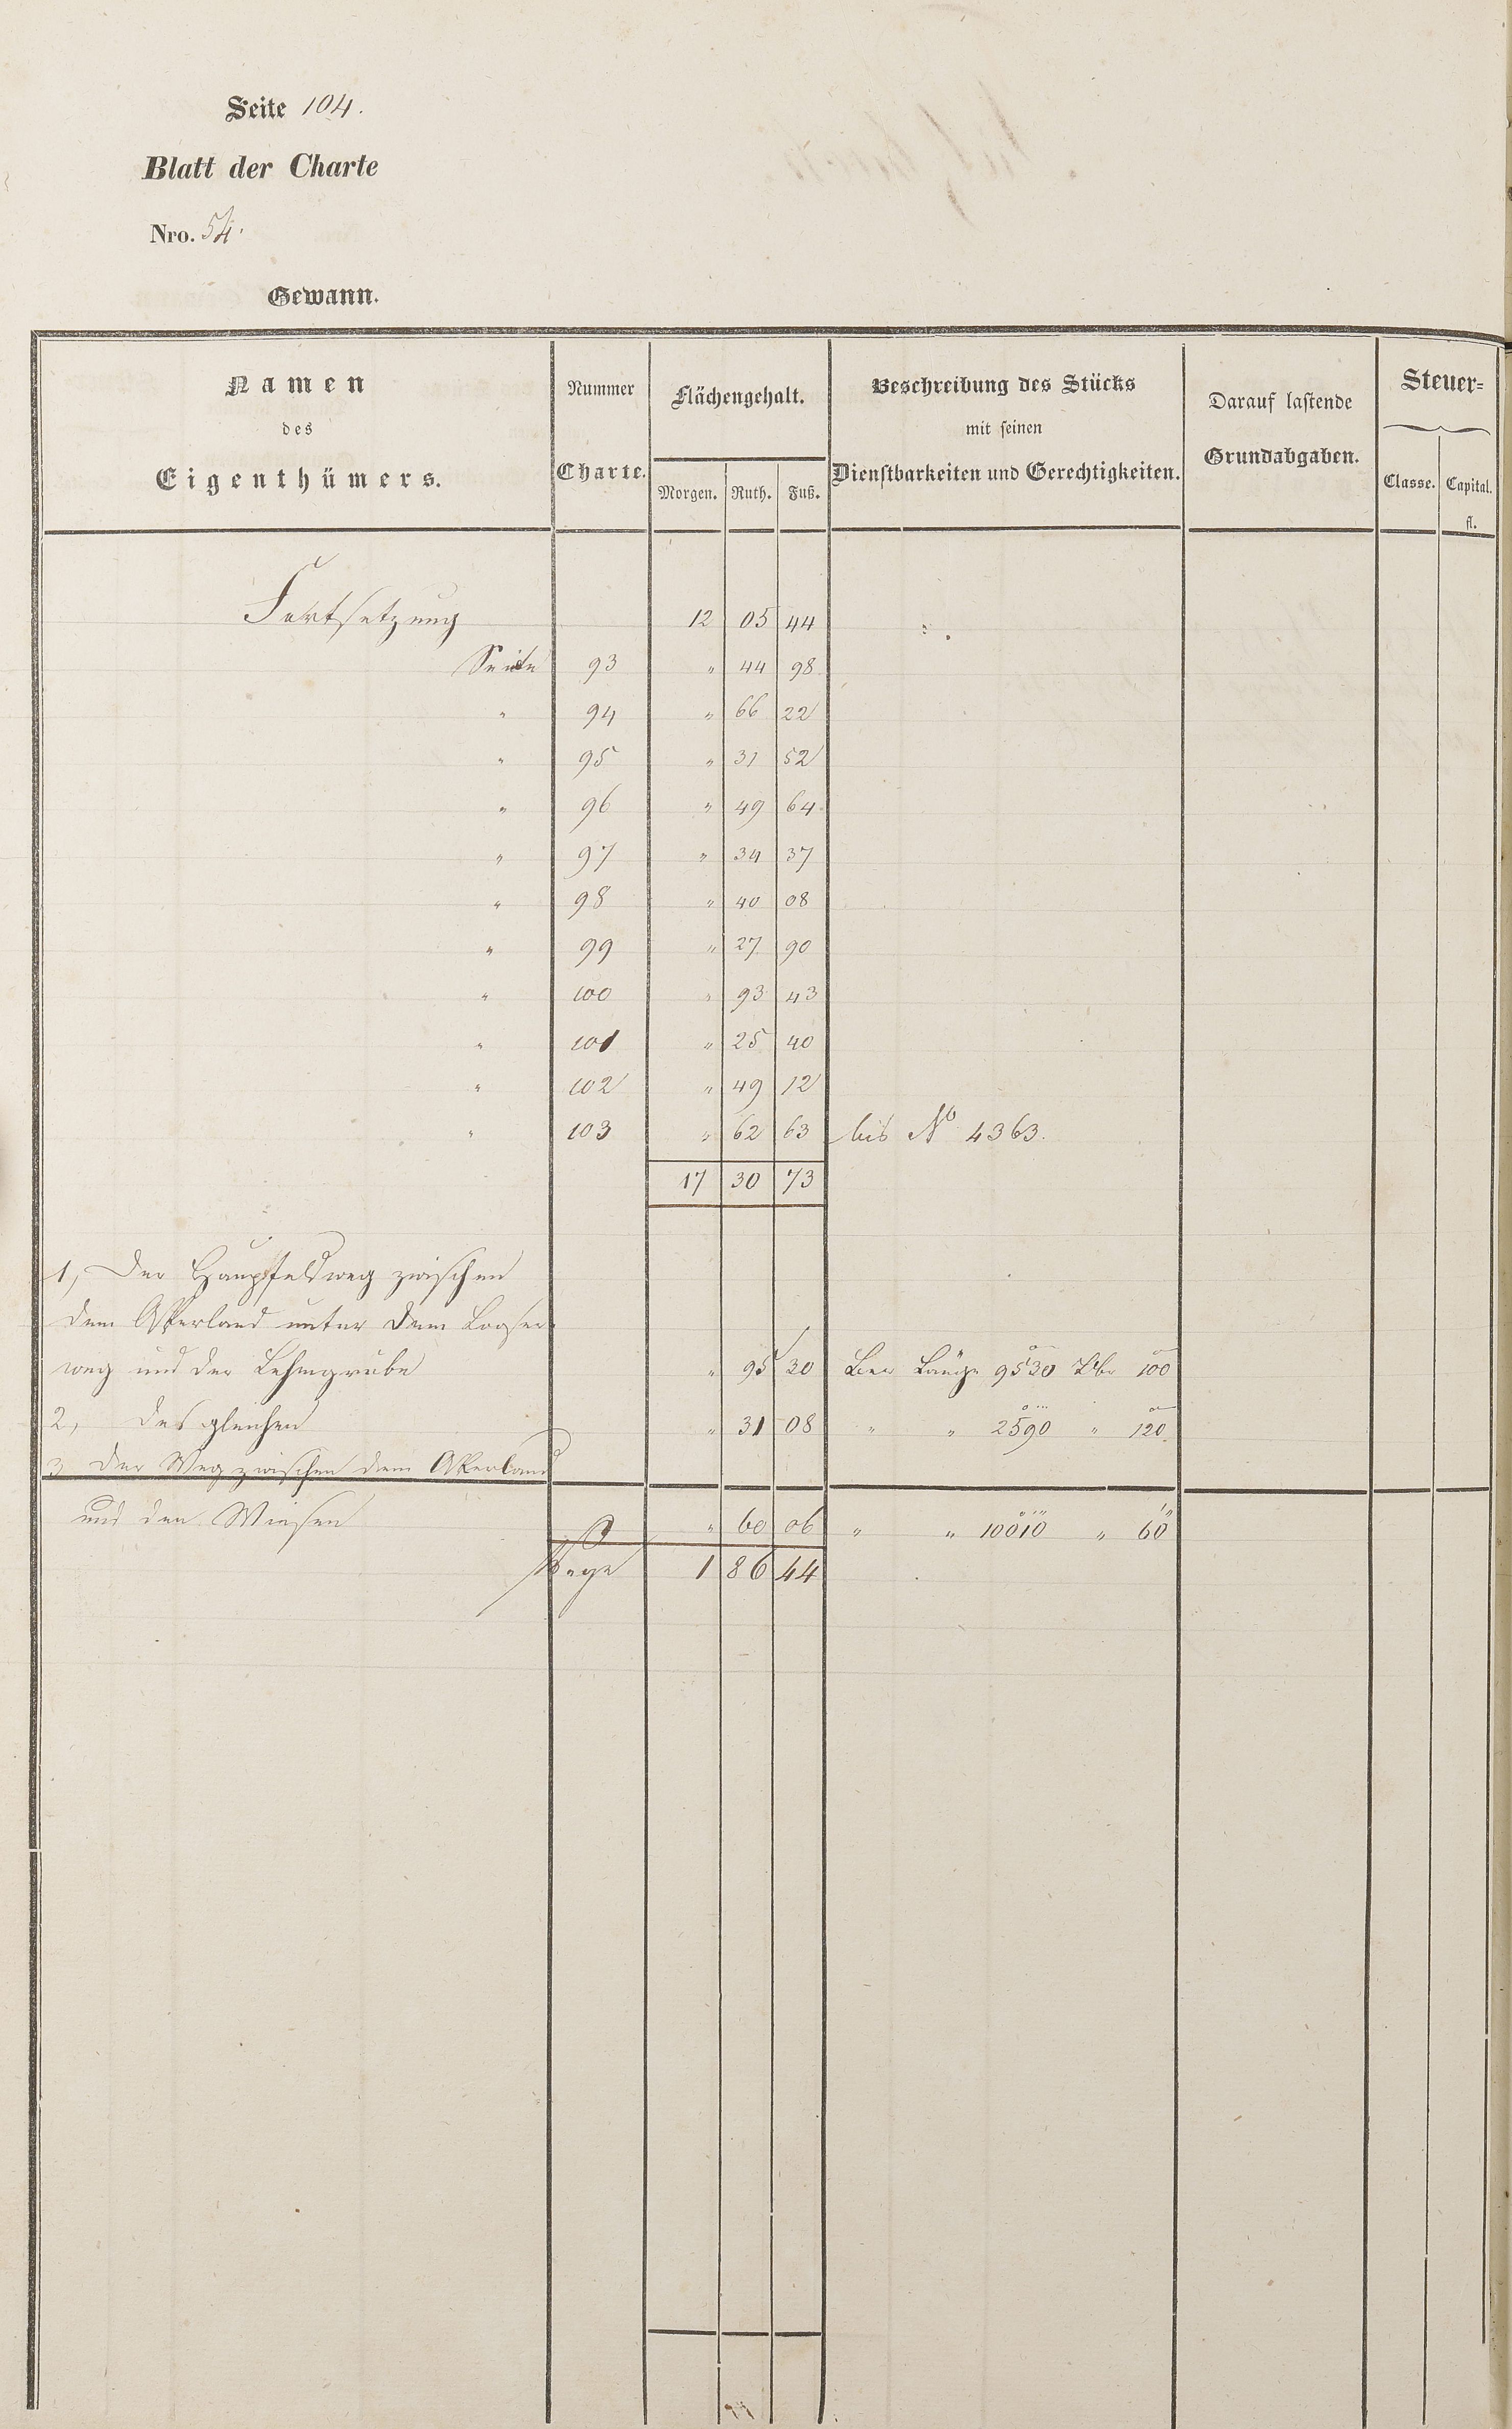 Seite 104.
Blatt der Charte
Nro. 54.
Gewann.
Namen des Eigenthümers. Nummer Charte. Flächengehalt. Morgen. Ruth. Fuß. Beschreibung des Stücks mit seinen Dienstbarkeiten und Gerechtigkeiten. Darauf lastende Grundabgaben. Steuer= Classe. Capital. fl.
Fortsetzung 12 05 44
Seite 93 " 44 98
" 94 " 66 22
" 95 " 31 52
" 96 " 49 64
" 97 " 34 37
" 98 " 40 08
" 99 " 27 90
" 100 " 93 43
" 101 " 25 40
" 102 " 49 12
" 103 " 62 63 bis No 4363.
17 30 73
1, Der Hauptfeldweg zwischen
dem Akerland unter dem Looser
weg und der Lehmgrube " 95 30 Länge 9530 100
2, desgleichen " 31 08 " " 2590 " 120
3 Der Weg zwischen dem Akerland
und den Wiesen " 60 06 " " 10010 " 60
Wege 1 86 44